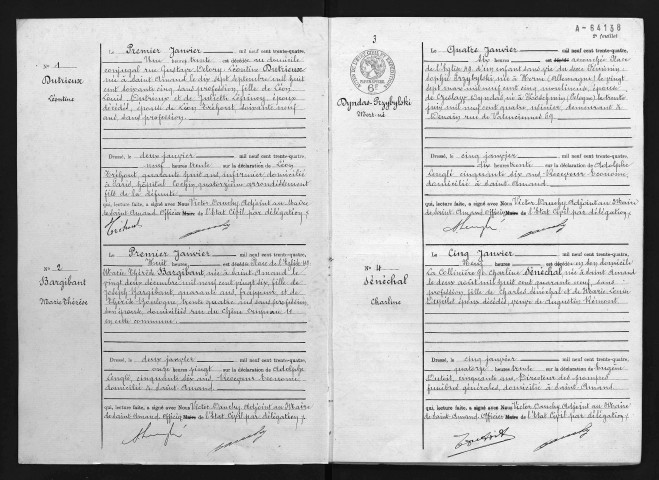 Nº 1
Dutrieux
Léontine
Le Premier Janvier mil neuf cent trente-quatre,
Une heure trente est décédée au domicile
conjugal rue Gustave Delory, Léontine Dutrieux
née à Saint Amand le dix sept Septembre mil huit
cent soixante cinq, sans profession, fille de Léon
Louis Dutrieux et de Juliette époux
décédés, épouse de Léon Tréhout, soixante neuf
ans, sans profession.
Dressé, le deux janvier mil neuf cent trente-quatre,
neuf heures trente sur la déclaration de Léon
Tréhout, quarante ans, infirmier, domicilié
à Paris, hôpital Cochin, quatorzième arrondissement
fils de la défunte
qui, lecture faite, a signé avec Nous Victor Danchy Adjoint au Maire
de Saint Amand Officier de l'Etat Civil par délégation
Nº 2
Bargibant
Marie Thérèse
Le Premier Janvier mil neuf cent trente-quatre,
Huit heures est décédée Place de l'Eglise
Marie Thérèse Bargibant, née à Saint Amand le
vingt deux décembre mil neuf cent vingt six, fille de
Joseph Bargibant, quarante ans, frappeur et de
Thérèse trente quatre ans, sans profession,
son épouse, domiciliés rue du Chêne Crupeau
en cette commune.
Dressé, le deux janvier mil neuf cent trente-quatre,
onze heures vingt sur la déclaration de Adolphe
Senglé, cinquante six ans, Receveur Econome
domicilié à Saint Amand
qui, lecture faite, a signé avec Nous Victor Danchy Adjoint au Maire
de Saint Amand Officier de l'Etat Civil par délégation
A-64138
2e feuillet
3
6 F
Dyndas-Przybylski
Mort-né
Le Quatre Janvier mil neuf cent trente-quatre,
Dix heures est accouchée Place
de l'Eglise d'un enfant sans vie du sexe féminin
Sophie Przybylski, née à Herne (Allemagne) le vingt
sept mars mil neuf cent cinq, épouse
de Czeslaw Dyndas né à (Pologne) le trente
juin mil neuf cent quatre, mineur, demeurant à
Denain, rue de Valenciennes 69
Dressé, le cinq janvier mil neuf cent trente-quatre,
heures trente sur la déclaration de Adolphe
Senglé cinquante six ans Receveur Econome,
domicilié à Saint Amand
qui, lecture faite, a signé avec Nous Victor Danchy Adjoint au Maire
de Saint Amand Officier de l'Etat Civil par délégation
Nº 4
Sénéchal
Charline
Le Cinq Janvier mil neuf cent trente-quatre,
heures est décédée en son domicile
La Collinière Charline Sénéchal née à Saint Amand
le deux août mil huit cent quarante neuf, sans
profession fille de Charles Sénéchal et de Marie
époux décédés, veuve de Augustin
Dressé, le cinq janvier mil neuf cent trente-quatre,
quatorze heures trente sur la déclaration de Eugène
cinquante ans, Directeur des pompes
funèbres générales, domicilié à Saint Amand
qui, lecture faite, a signé avec Nous Victor Danchy Adjoint au Maire
de Saint Amand Officier de l'Etat Civil par délégation